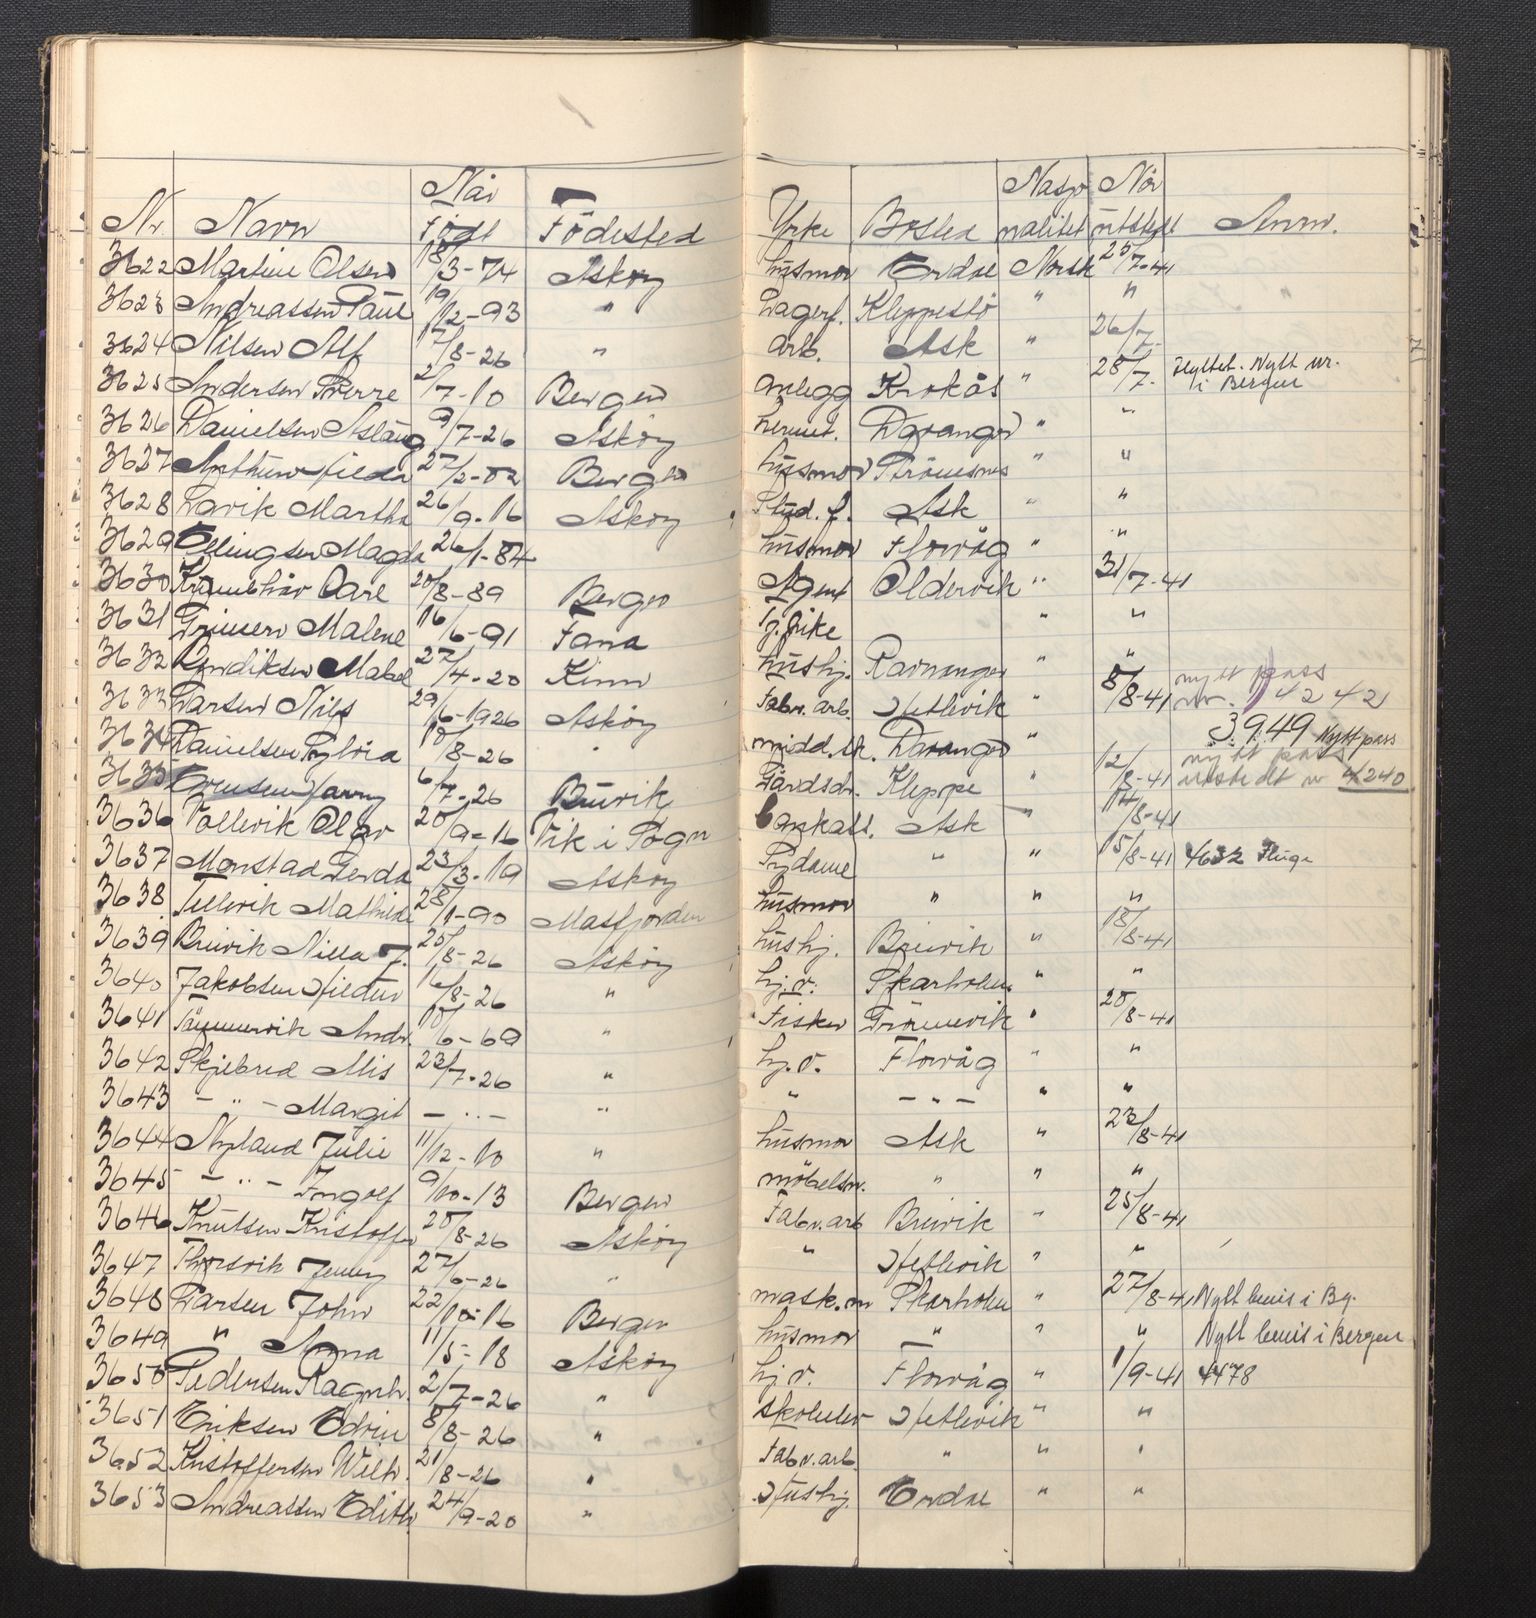 Nr Navn Når Født Födested Yrke Bosted Nasjonalitet Når utstedt Anm.
3622 Martine Olsen 18/3-74 Askøy husmor Erdal Norsk 25/7-41
3623 Andreassen Paul 19/12-93 " Lagerf. Kleppestö " "
3624 Nilsen Alf 17/8-26 " arb. Ask " 26/7-
3625 Andersen Sverre 2/7-10 Bergen anlegg Krokås " 28/7- Flyttet. Nytt nr. i Bergen
3626 Danielsen Aslaug 9/7-26 Askøy hermet. Davanger " "
3627 Anthun Hilda 27/2-02 Bergen husmor Strömsnes " "
3628 Larvik Martha 26/9-16 Askøy Stud. f. Ask " "
3629 Ellingsen Magda 26/1-84 husmor Florvåg " "
3630 Carl 20/8-89 Bergen Agent Oldervik " 31/7-41
3631 Malene 16/6-91 Fana " "
3632 Bendiksen Mabel 27/4-20 Kinn hushj. Ravnanger " "
3633 Larsen Nils 29/6-1926 Askøy Fabr. arb. Hetlevik " 8/8-41 nytt pass nr. 4242
3634 Danielsen Sylvia 18/8-26 " Davanger " 3949 Nytt pass
3635 Evensen Harry 6/7-26 Buvik Gårdsdr. Kleppe " 12/8-41 nytt pass utstedt nr 4240
3636 Vollevik Olav 20/9-16 Vik i Sogn bankass. Ask " 14/8-41
3637 Monstad Gerda 23/3-19 Askøy Sydame " " 15/8-41 4632 Fluge
3638 Tellevik Mathilde 28/1-90 Masfjorden husmor " " "
3639 Breivik Nilla J. 25/8-26 Askøy hushj. Breivik " 18/8-41
3640 Jakobsen Hildur 16/8-26 " hj. v. Skarholm " "
3641 Tömmervik Andr. 10/6-69 " Fisker Trömmevik " 20/8-41
3642 Skjelbred Mis 23/7-26 " hj. v. Florvåg " "
3643 - " - Margit - " - " " - " - " "
3644 Nyland Julie 11/12-10 " husmor Ask " 23/8-41
3645 - " - Ingolf 9/10-13 Bergen möbelsn. " " "
3646 Knutsen Kristoffer 20/8-26 Askøy Fabr. arb Breivik " 25/8-41
3647 Thorsvik Jenny 27/6-26 " " Hetlevik " "
3648 Larsen John 22/10-16 Bergen mask. m Skarholm " 27/8-41 Nytt bevis i Bg.
3649 " Anna 11/5-18 Askøy husmor " " " Nytt bevis i Bergen
3650 Pedersen Ragnh. 2/7-26 " hj. v. Florvåg " 1/9-41 4478
3651 Eriksen Edvin 8/8-26 " skoleelev Hetlevik " "
3652 Kristoffersen Wilh. 21/8-26 " Fabr. arb. " " "
3653 Andreassen Edith 24/9-20 " Hushj. Erdal " "